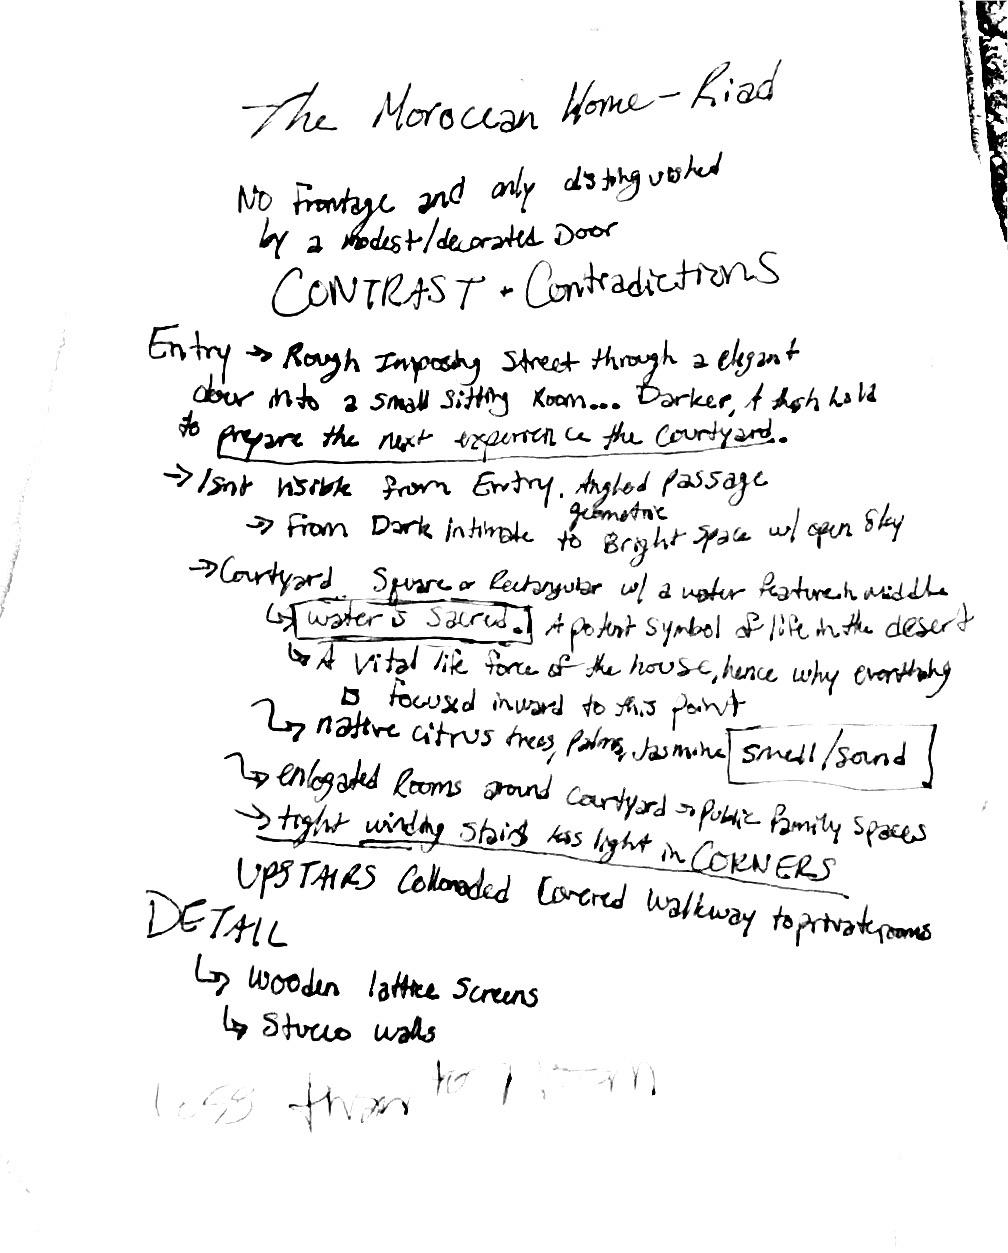 The Moroccan Home - Riad
No Frontage and only distinguished
by a modest/decorated Door
CONTRAST + Contradictions
Entry → Rough Imposing Street through a elegant
door into a small sitting Room... Darker, A
to prepare the next experience the Courtyard.
→ Isnt visible from Entry. Angled Passage
geometric
→ From Dark intimate to Bright Space w/ open Sky
→ Courtyard Square or Rectangular w/ a water feature in middle
↳ Water is Sacred. A potent Symbol of life in the desert
↳ A vital life force of the house, hence why everything
is focused inward to this point
↳ native citrus trees, palms, Jasmine smell/sound
↳ enlogated Rooms around Courtyard → Public family Spaces
→ tight winding Stairs less light in CORNERS
UPSTAIRS Collonaded Covered Walkway to private rooms
DETAIL
↳ Wooden lattice Screens
↳ Stucco walls
less than to